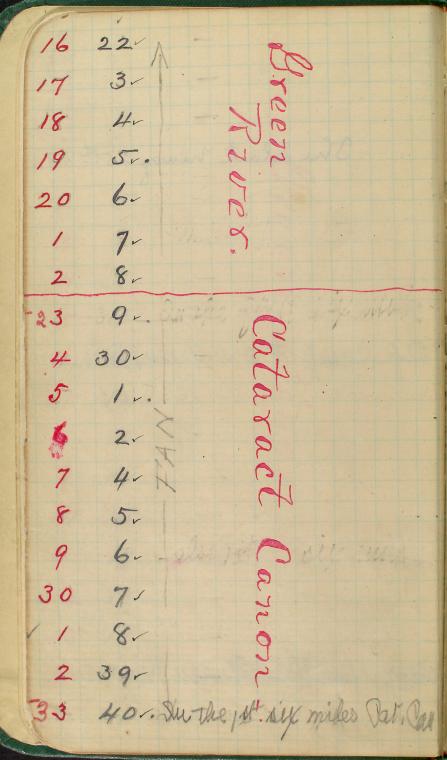 16 22✓
17 3✓
18 4✓
19 5✓.
20 6✓
1 7✓
2 8✓
Green
River.
23 9✓.
4 30✓
5 1✓.
6 2✓
7 4✓
8 5✓
9 6✓
30 7✓
✓ 1 8✓
2 39✓
33 40✓. In the 1st. six miles Cat. Can
Cataract Canon
JAN